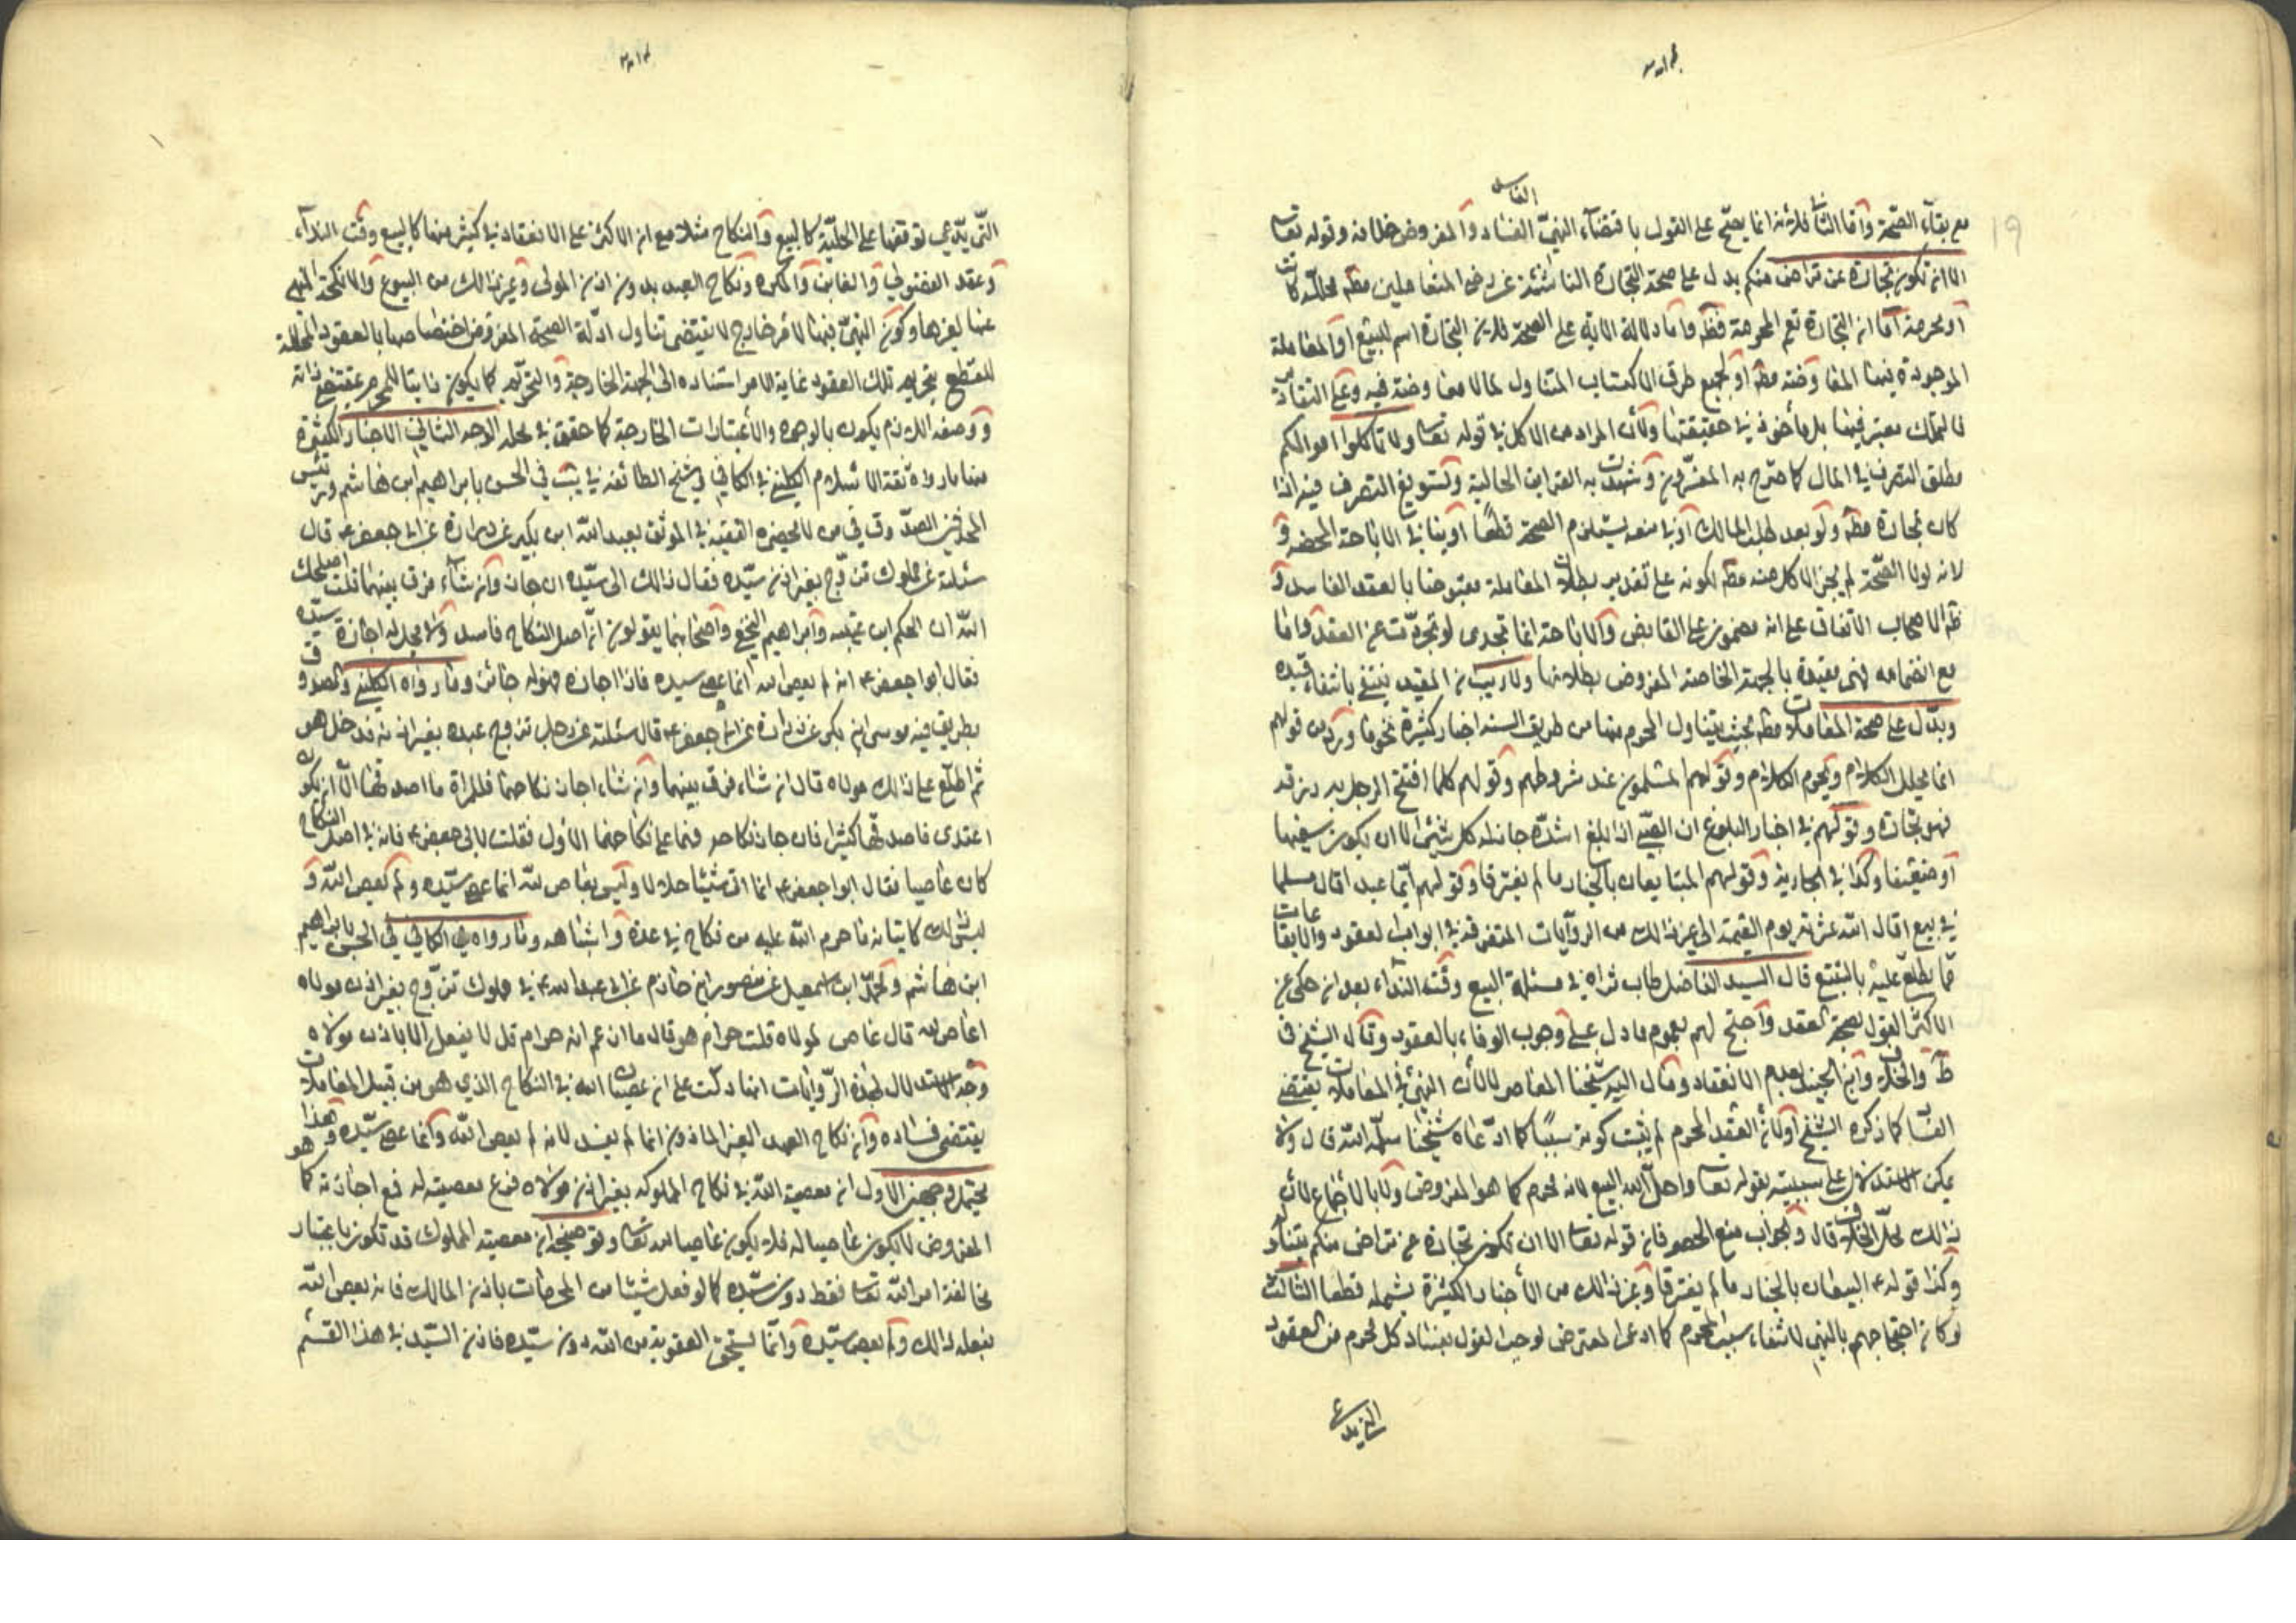 مع بقاء الصحة واما الثانى فلانه انما يصحّ على القول باقتضاء النهىّ الفساد والمفروض خلافه وقوله تعا
الا ان تكون تجارة عن تراض منكم يدل على صحة التجارة الناشئة عن رضى المتعاملين مطه محلله كانت
او محرمة امّا ان التجارة تعم المحرمة فظه واما دلالة الاية على الصحة فلان التجارة اسم للبيع او المعاملة
الموجودة فيها المعاوضة مطه او لجميع طرق الاكتساب المتناول لما لا معاوضة فيه وعلى التقادير
فالتملك معتبر فيها بل مأخوذ فى حقيقتها ولأن المراد من الاكل فى قوله تعا ولا تأكلوا اموالكم
مطلق التصرف فى المال كما صرّح به المفسّرون وشهدت به القراين الحالية وتسويغ التصرف فيه اذا
كان تجارة مطه ولو بعد طلب المالك او فى منعه يستلزم الصحة قطعًا او ينافى الاباحة المحضه و
لانه لولا الصّحة لم يجز الاكل منه مطه لكونه على تقدير بطلان المعاملة مقبوضا بالعقد الفاسد و
ظه الاصحاب الاتفاق على انه مضمون على القابض والاباحة انما تجدى لو تجردت عن العقد واما
مع انضمامه فهى مقيدة بالجهة الخاصة المفروض بطلانها ولا ريب ان المقيد ينتفى بانتفاء قيده
ويدّل على صحة المعاملات مطه بحيث يتناول المحرم منها من طريق السنه اخبار كثيرة نحو ما ورد من قولهم
انما يحلل الكلام ويحرم الكلام وقولهم المسلمون عند شروطهم وقولهم كلما افتتح الرجل به رزقه
فهو تجارة وقولهم فى اخبار البلوغ ان الصبى اذا بلغ اشدّه جاز له كل شئ الا ان يكون سفيها
او ضعيفا وكذا فى الجارية وقولهم المتبايعان بالخيار ما لم يفترقا وقولهم ايّما عبد اقال مسلما
فى بيع اقال الله عثرته يوم القيمة الى غير ذلك من الروايات المتفرقة فى ابواب العقود والايقاعات
مما يطلع عليه بالتتبع قال السيد الفاضل طاب ثراه فى مسئلة البيع وقت النداء بعد ان حكى عن
الاكثر القول بصحة العقد واحتج لهم بعموم ما دل على وجوب الوفاء بالعقود وقال الشيخ فى
ط والخلاف وابن الجنيد بعدم الانعقاد ومال اليه شيخنا المعاصر لا لأن النهى فى المعاملات يقتضى
الفساد كما ذكره الشيخ او لأن العقد المحرم لم يثبت كونه سببًا كما ادّعاه شيخنا سلّمه الله قال ولا
يمكن الاستدلال على سببيته بقوله تعا واحل الله البيع لانه محرم كما هو المفروض ولا بالاجماع لأن
ذلك محلّ الخلاف قال والجواب منع الحصر فان قوله تعا الا ان تكون تجارة عن تراض منكم يتناوله
وكذا قوله ع البيعان بالخيار ما لم يفترقا وغير ذلك من الأخبار الكثيرة يشمله قطعا الثالث
لو كان احتجاجهم بالنهى لانتفاء سبب المحرم كما ادعى المعترض لوجب القول بفساد كل محرم من العقود
التّى يدّعى توقفها على الحليّة كالبيع والنكاح مثلا مع ان الاكثر على الانعقاد فى كثير منها كالبيع وقت النداء
وعقد الفضولى والغابن والمكره ونكاح العبد بدون اذن المولى وغير ذلك من البيوع والانكحة المنهى
عنها لغيرها وكون النهىّ فيها لأمر خارج لا يقتضى تناول ادلّة الصحة المفروض اختصاصها بالعقود المحللة
للقطع بتحريم تلك العقود غاية الامر استناده الى الجهة الخارجة والتحريم كما يكون ثابتا للمحرم بمقتضى ذاته
ووصفه اللازم يكون بالوجوه والأعتبارات الخارجة كما حقق فى محله الوجه الثانى الاخبار الكثيرة
منها ما رواه ثقة الاسلام الكلينى فى الكافى وشيخ الطائفه فى يب فى الحسن بابراهيم ابن هاشم ورئيس
المحدثين الصدّوق فى من لا يحضره الفقيه فى الموثق بعبدالله ابن بكير عن زرارة عن ابى جعفر ع قال
سئلته عن مملوك تزوّج بغير اذن سيّده فقال ذالك الى سيّده ان اجاز وان شاء فرق بينهما قلت اصلحك
الله ان الحكم ابن عتيبه وابراهيم النخعى واصحابهما يقولون ان اصل النكاح فاسد ولا يحل له اجازة سيّده
فقال ابو جعفر ع انه لم يعص الله انما عصى سيده فاذا اجازه فهو له جائز وما رواه الكلينى والصدوق
بطريق فيه موسى ابن بكر عن زرارة عن ابى جعفر ع قال سئلته عن رجل تزوج عبده بغير اذنه فدخل هو
ثم اطلع على ذالك مولاه قال ان شاء فرق بينهما وان شاء اجاز نكاحهما فللمراة ما اصدقها الّا ان يكون
اعتدى فاصدقها كثيرا فان جاز نكاحه فهما على نكاحهما الأول فقلت لابى جعفر ع فانه فى اصل النكاح
كان عاصيا فقال ابو جعفر ع انما اتى شيئا حلالا وليس بعاص لله انما عصى سيّده ولم يعص الله و
ليس ذلك كاتيانه ما حرم الله عليه من نكاح فى عدة واشباهه وما رواه فى الكافى فى الحسن بابراهيم
ابن هاشم ومحمد ابن اسمعيل عن منصور ابن حازم عن ابى عبدالله ع فى مملوك تزوّج بغير اذن مولاه
اعاص لله قال عاص لمولاه قلت حرام هو قال ما ازعم انه حرام قل لا يفعل الا باذن مولاه
وجه الاستدلال لهذه الروايات انها دلت على ان عصيان الله فى النكاح الذى هو من قبيل المعاملات
يقتضى فساده وان نكاح العبد الغير الماذون انما لم يفسد لانه لم يعص الله وانما عصى سيّده وهذا هو
يحتمل وجهين الاول ان معصية الله فى نكاح المملوكه بغير اذن مولاه فرع معصيته له فمع اجازته كما
المفروض لا يكون عاصيا له فلا يكون عاصيا لله تعا وتوضيحه ان معصية المملوك قد تكون باعتبار
مخالفة امر الله تعا فقط دون سيّده كما لو فعل شيئا من المحرمات باذن المالك فانه يعصى الله
بفعله ذالك ولم يعص سيّده وانّما يستحق العقوبة من الله دون سيّده فاذن السّيد فى هذا القسم